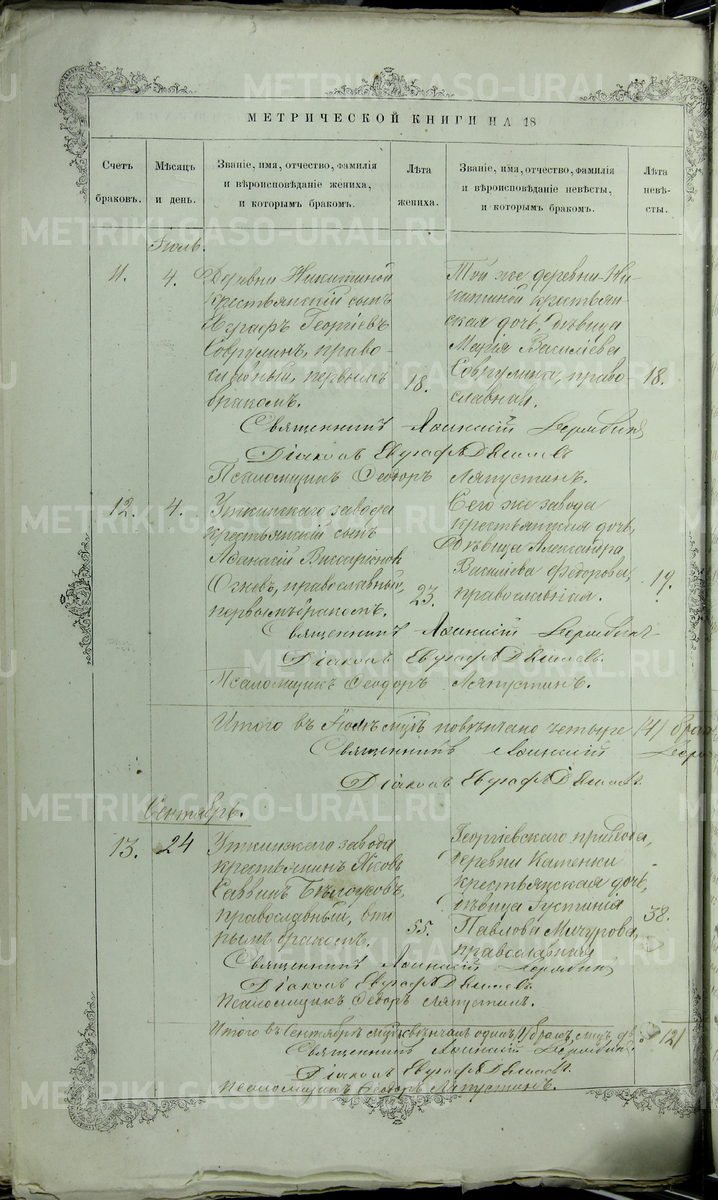 МЕТРИЧЕСКОЙ КНИГИ НА 18
Счетъ браковъ.
Мѣсяцъ и день.
Званіе, имя, отчество, фамилія
и вѣроисповѣданіе жениха,
и которымъ бракомъ.
Лѣта жениха.
Званіе, имя, отчество, фамилія
и вѣроисповѣданіе невѣсты,
и которымъ бракомъ.
Лѣта невѣ-
сты.
Іюль.
11.
4.
Деревни Никитиной
крестьянскій сынъ
Георгіевъ
Совгулинъ, право-
славный, первымъ
бракомъ.
18.
Той же деревни Ни-
китиной крестьян-
ская дочь, дѣвица
Марія Василіева
Совгулина, право-
славная.
18.
Священникъ
Діаконъ Евграфъ
Псаломщикъ Ѳеодоръ Ляпустинъ.
12.
4.
Уткинскаго завода
крестьянскій сынъ
Аѳанасій Виссаріонов
православный,
первымъ бракомъ.
23.
Сего же завода
крестьянская дочь,
дѣвица Александра
Василіева Федорова,
православная.
19.
Священникъ
Діаконъ Евграфъ
Псаломщикъ Ѳеодоръ Ляпустинъ.
Итого въ Іюлѣ мцѣ повѣнчано четыре (4) брак
Священникъ
Діаконъ Евграфъ
Сентябрь.
13.
24
Уткинскаго завода
крестьянинъ Яковъ
Саввинъ Бѣлоусовъ,
православный, вто
рымъ бракомъ.
55.
Георгіевскаго прихода,
деревни Каменки
крестьянская дочь,
дѣвица Густинія
Павлова Мичурова,
православная
38.
Священникъ
Діаконъ Евграфъ
Псаломщикъ Ѳеодоръ Ляпустинъ.
Итого въ Сентябрѣ мцѣ одинъ (1) бракъ
Священникъ
Діаконъ Евграфъ
Псаломщикъ Ѳеодоръ Ляпустинъ.
METRIKI.GASO-URAL.RU